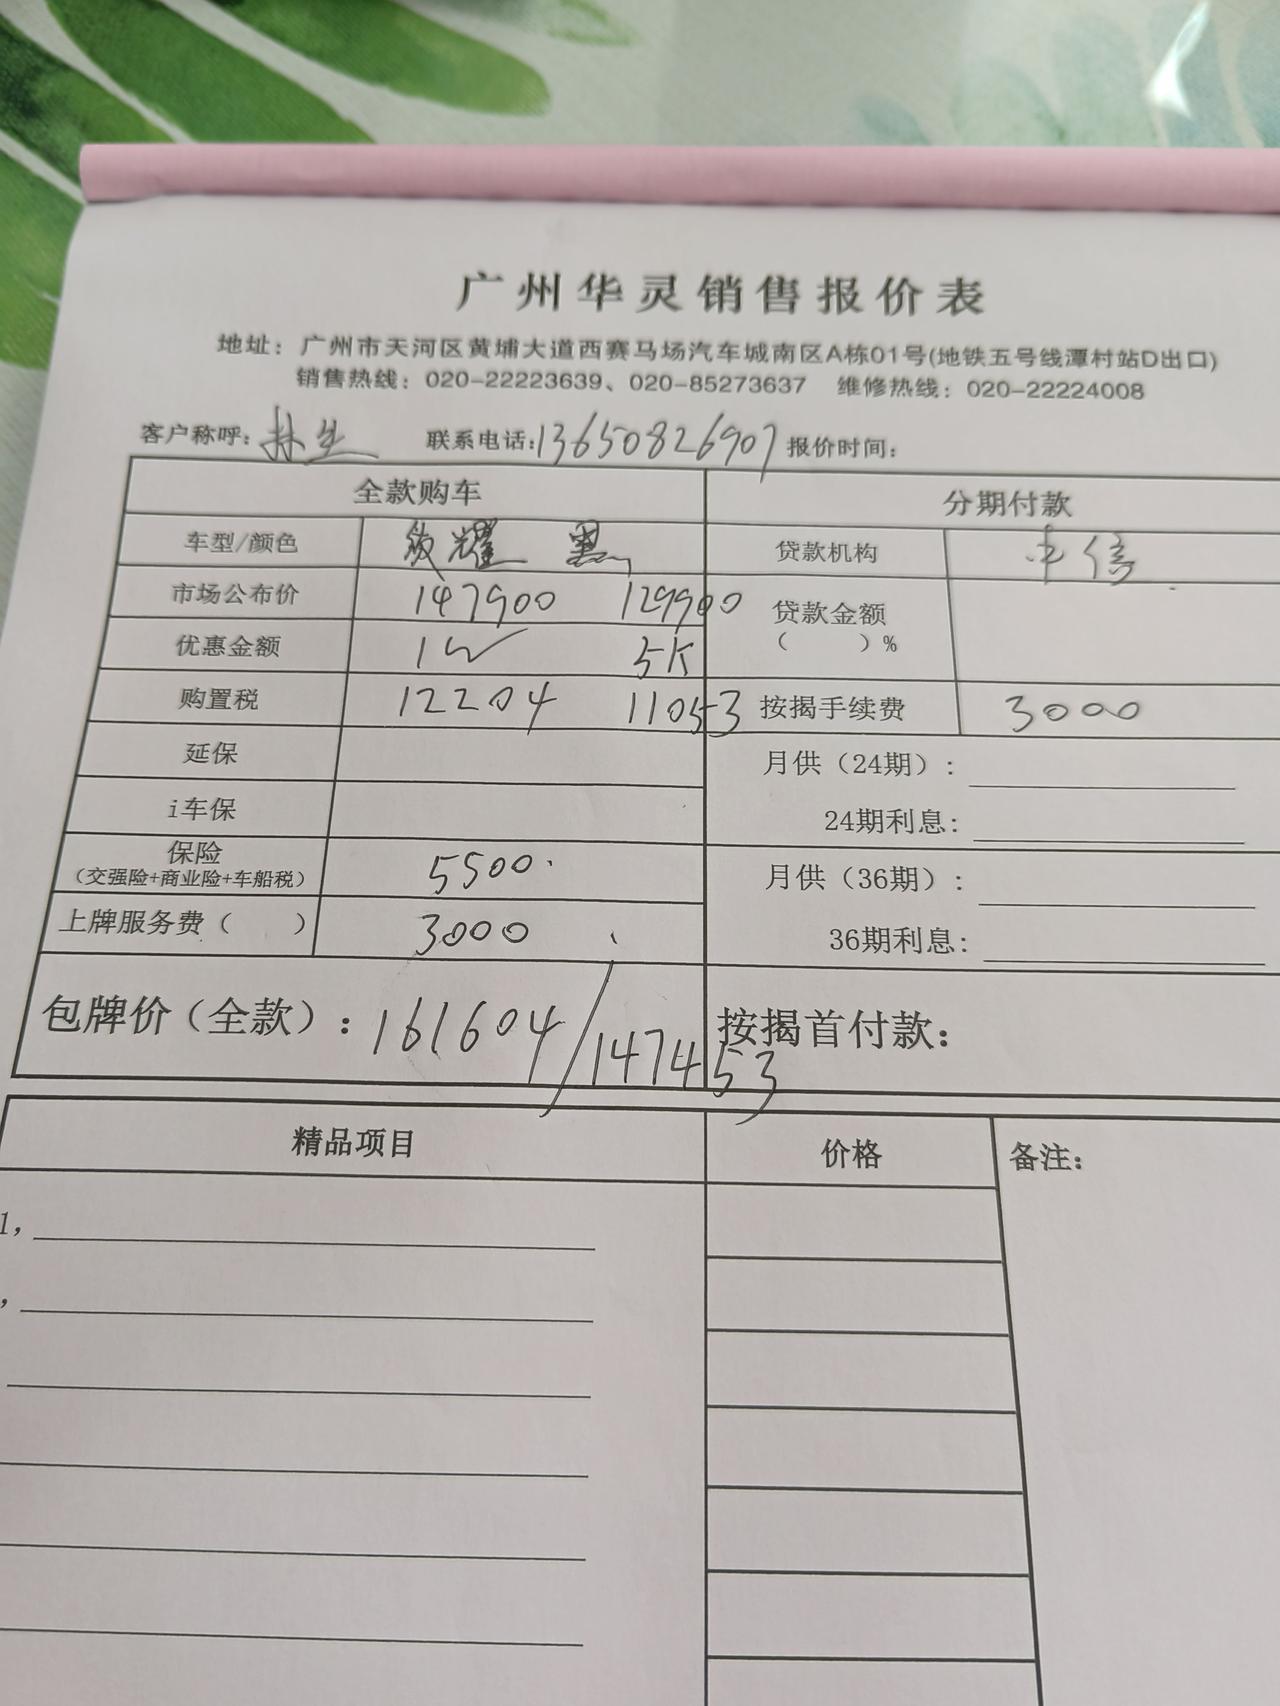 广州华灵销售报价表
地址：广州市天河区黄埔大道西赛马场汽车城南区A栋01号(地铁五号线潭村站D出口)
销售热线：020-22223639、020-85273637 维修热线：020-22224008
客户称呼：林生 联系电话:13650826907 报价时间：
全款购车 分期付款
车型/颜色 致耀 黑 贷款机构 中信
市场公布价 147900 129900 贷款金额
（ ）%
优惠金额 1W 5K
购置税 12204 11053 按揭手续费 3000
延保 月供（24期）：
i车保 24期利息：
保险
（交强险+商业险+车船税） 5500 月供（36期）：
上牌服务费（ ） 3000 36期利息：
包牌价（全款）：161604/147453 按揭首付款：
精品项目 价格 备注：
1，
，